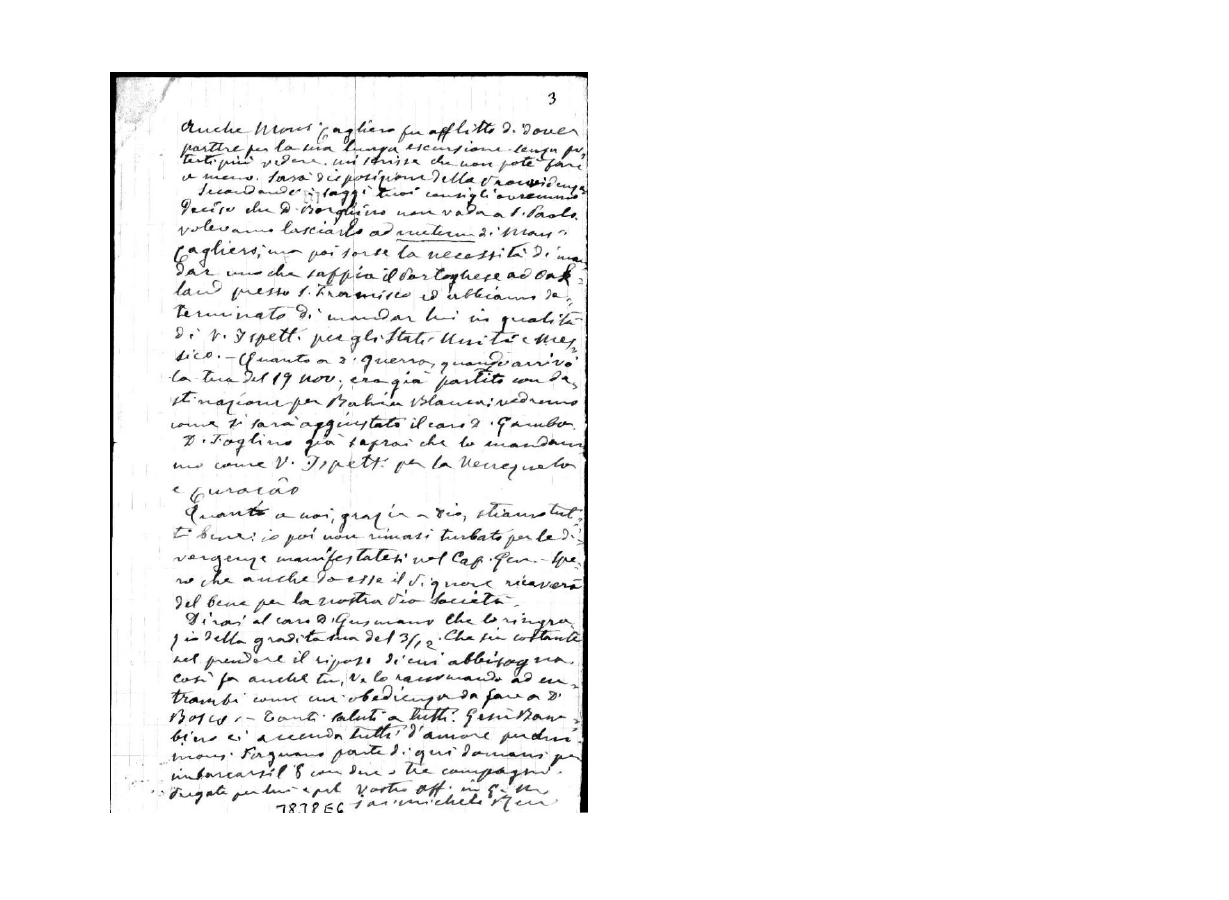 3
Anche Mons. Cagliero fu afflitto di dover
partire per la sua lunga escursione senza po-
terti più vedere. mi scrisse che non poté fare
a meno. Sarà disposizione della Provvidenza
Secondando i saggi tuoi consigli avremmo
deciso che D. Borghino non vada a S. Paolo.
volevamo lasciarlo ad nutum di Mons.
Cagliero; ma poi sorse la necessità di man
dar uno che sappia il Portoghese ad Oak-
land presso S. Francisco ed abbiamo de-
terminato di mandar lui in qualità
di V. Ispett. per gli Stati Uniti e Mes-
sico. - Quanto a D. Guerra, quando arrivò
la tua del 19 nov. era già partito con de-
stinazione per Bahia Blanca: vedremo
come si sarà aggiustato il caro D. Gamba.
D. Foglino già saprai che lo mandam
mo come V. Ispett. per la Venezuela
e Curação
Quanto a noi, grazie a Dio, stiamo tut-
ti bene: io poi non rimasi turbato per le di-
vergenze manifestatesi nel Cap. Gen. - Spe-
ro che anche da esse il Signore ricaverà
del bene per la nostra Pia Società.
Dirai al caro D. Gusmano che lo ringra-
zio della gradita sua del 3/12. Che sia costante
nel prendere il riposo di cui abbisogna.
così fa anche tu, Ve lo raccomando ad en-
trambi come un'obedienza da fare a D.
Bosco. - Tanti saluti a tutti. Gesù Bam-
bino ci accenda tutti d'amore
parte di qui domani per
imbarcarsi l'8 con due o tre compagni.
Pregate per lui e pel Vostro aff. in G. e M.
Sac. Michele Rua
7838E6